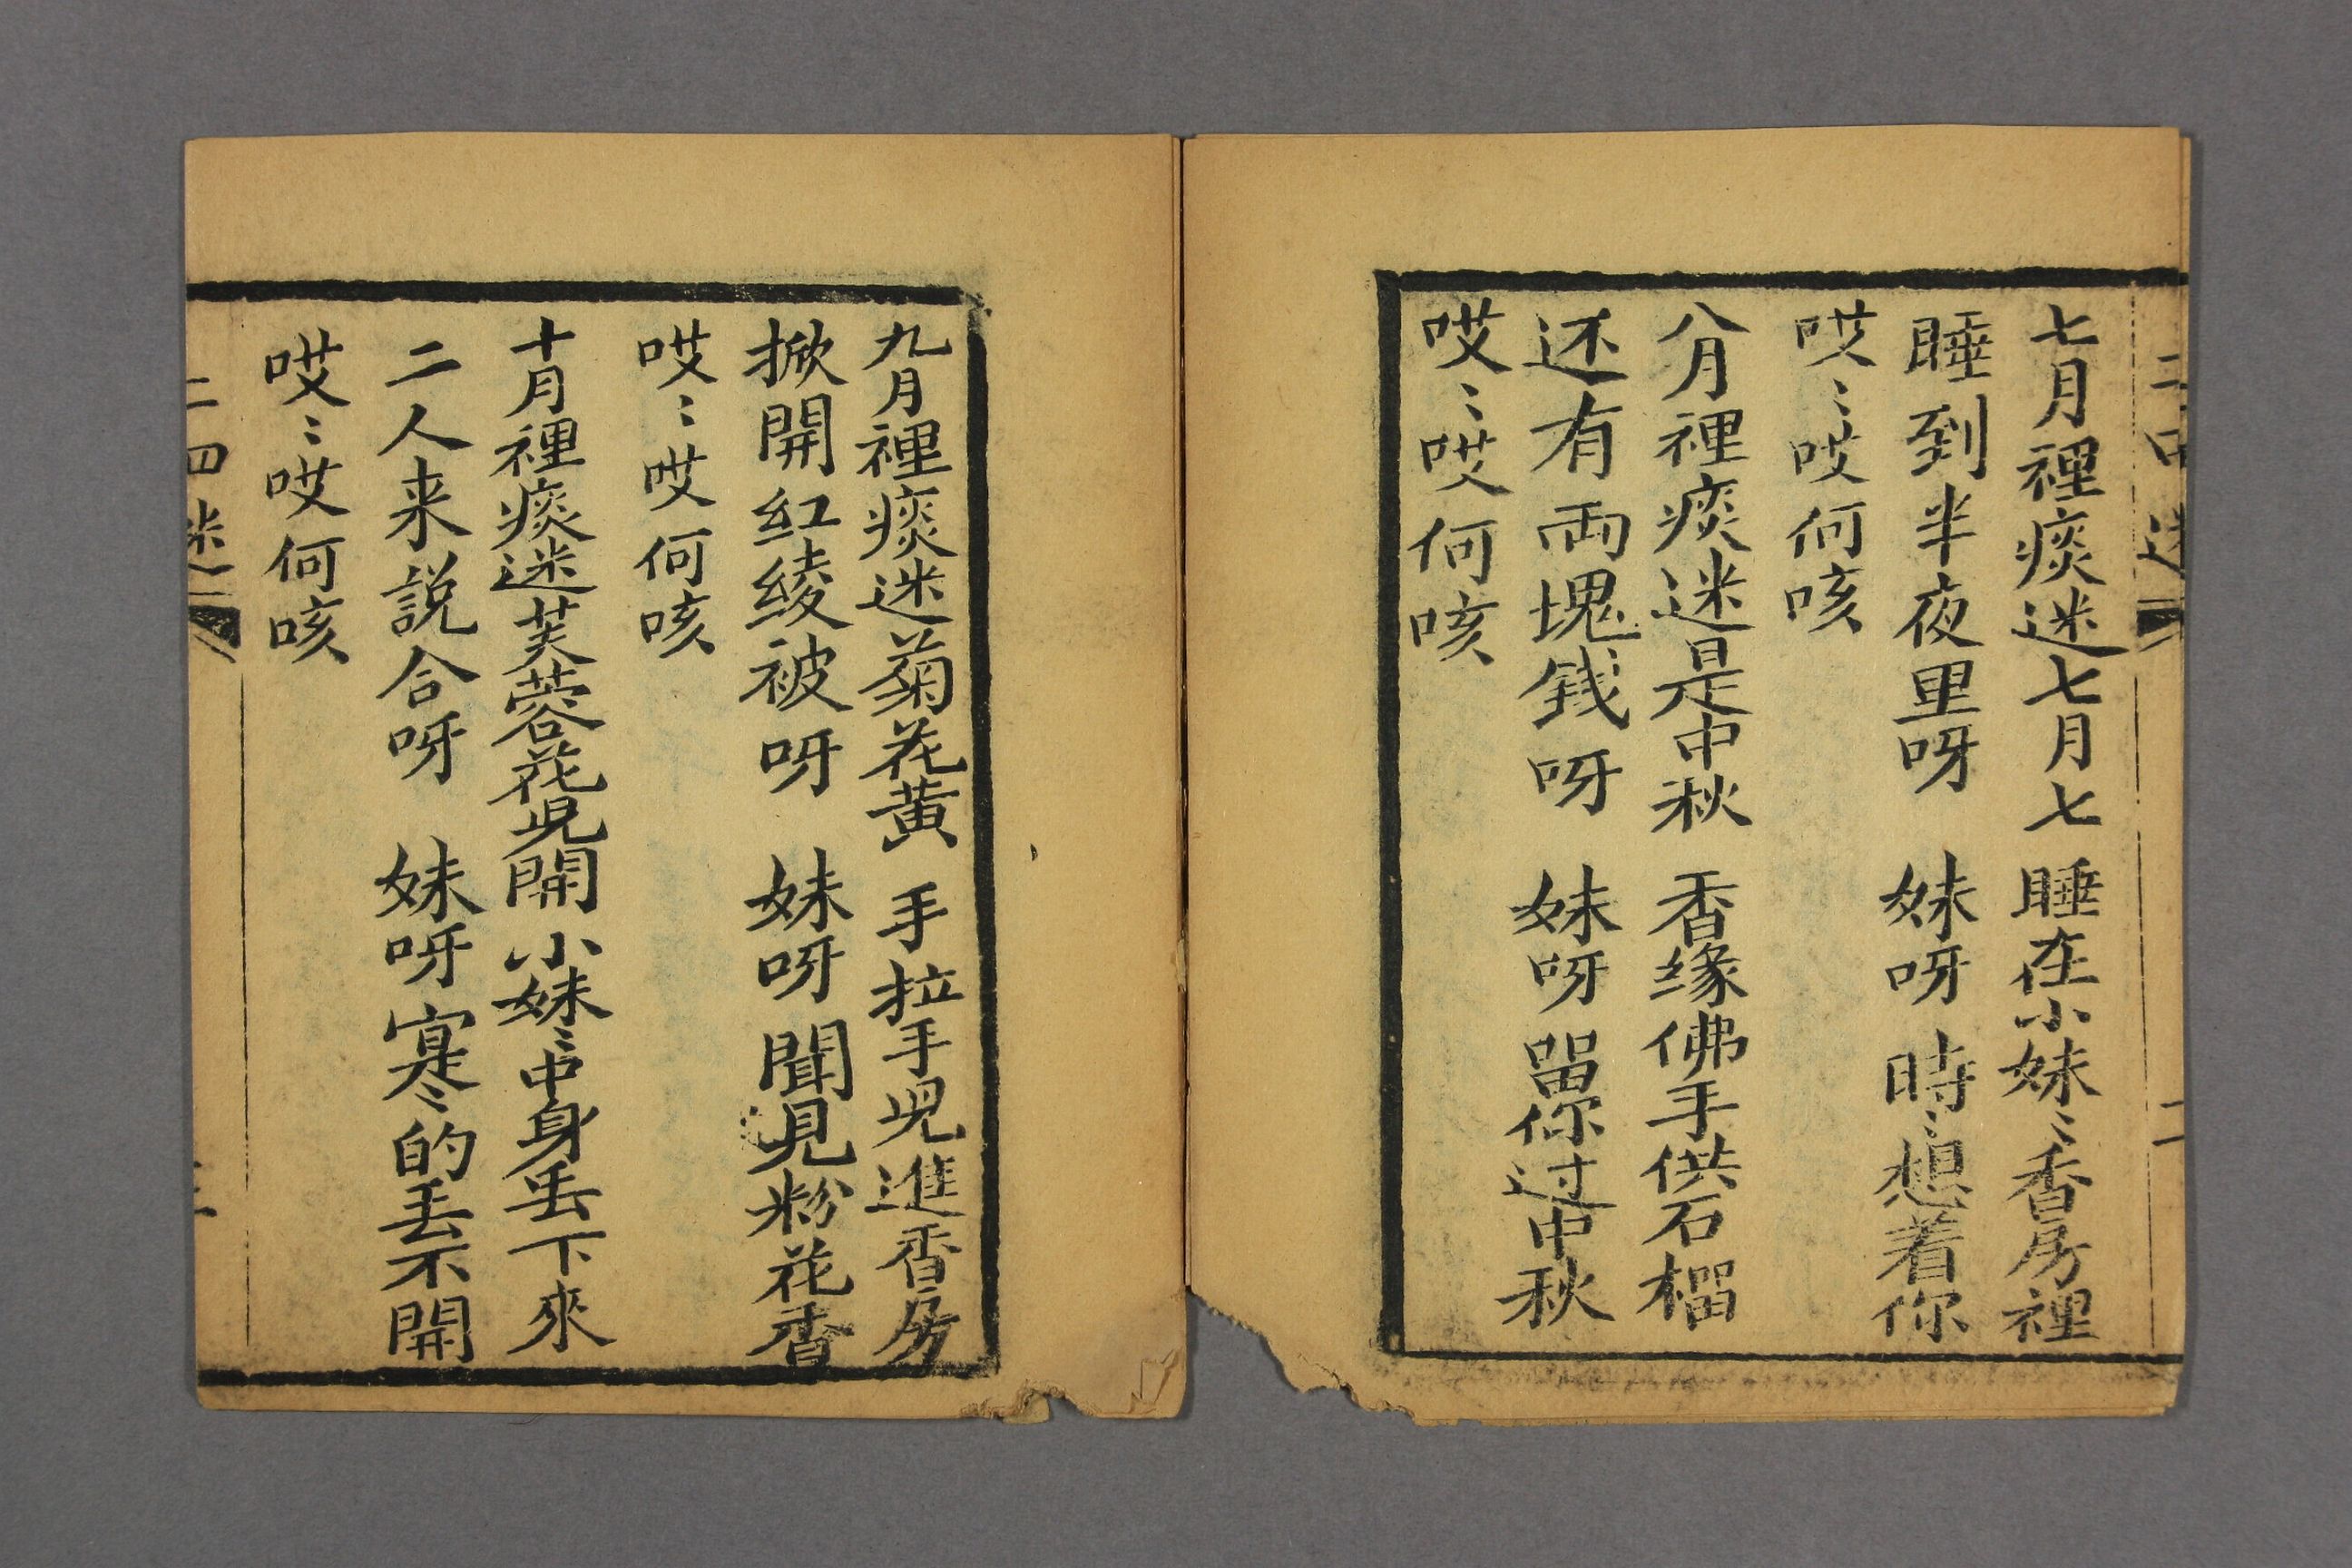 七月裡痰迷七月七 睡在小妹〻香房裡
睡到半夜里呀 妹呀時〻想着你
哎〻哎何咳
八月裡痰迷是中秋 香缘佛手供石榴
还有両塊銭呀 妹呀畄你过中秋
哎〻哎何咳
九月裡痰迷菊花黃 手拉手児進香房
掀開紅綾被呀 妹呀聞見粉花香
哎〻哎何咳
十月裡痰迷芙蓉花児開 小妹〻中身丢下來
二人来説合呀 妹呀寔〻的丢不開
哎〻哎何咳